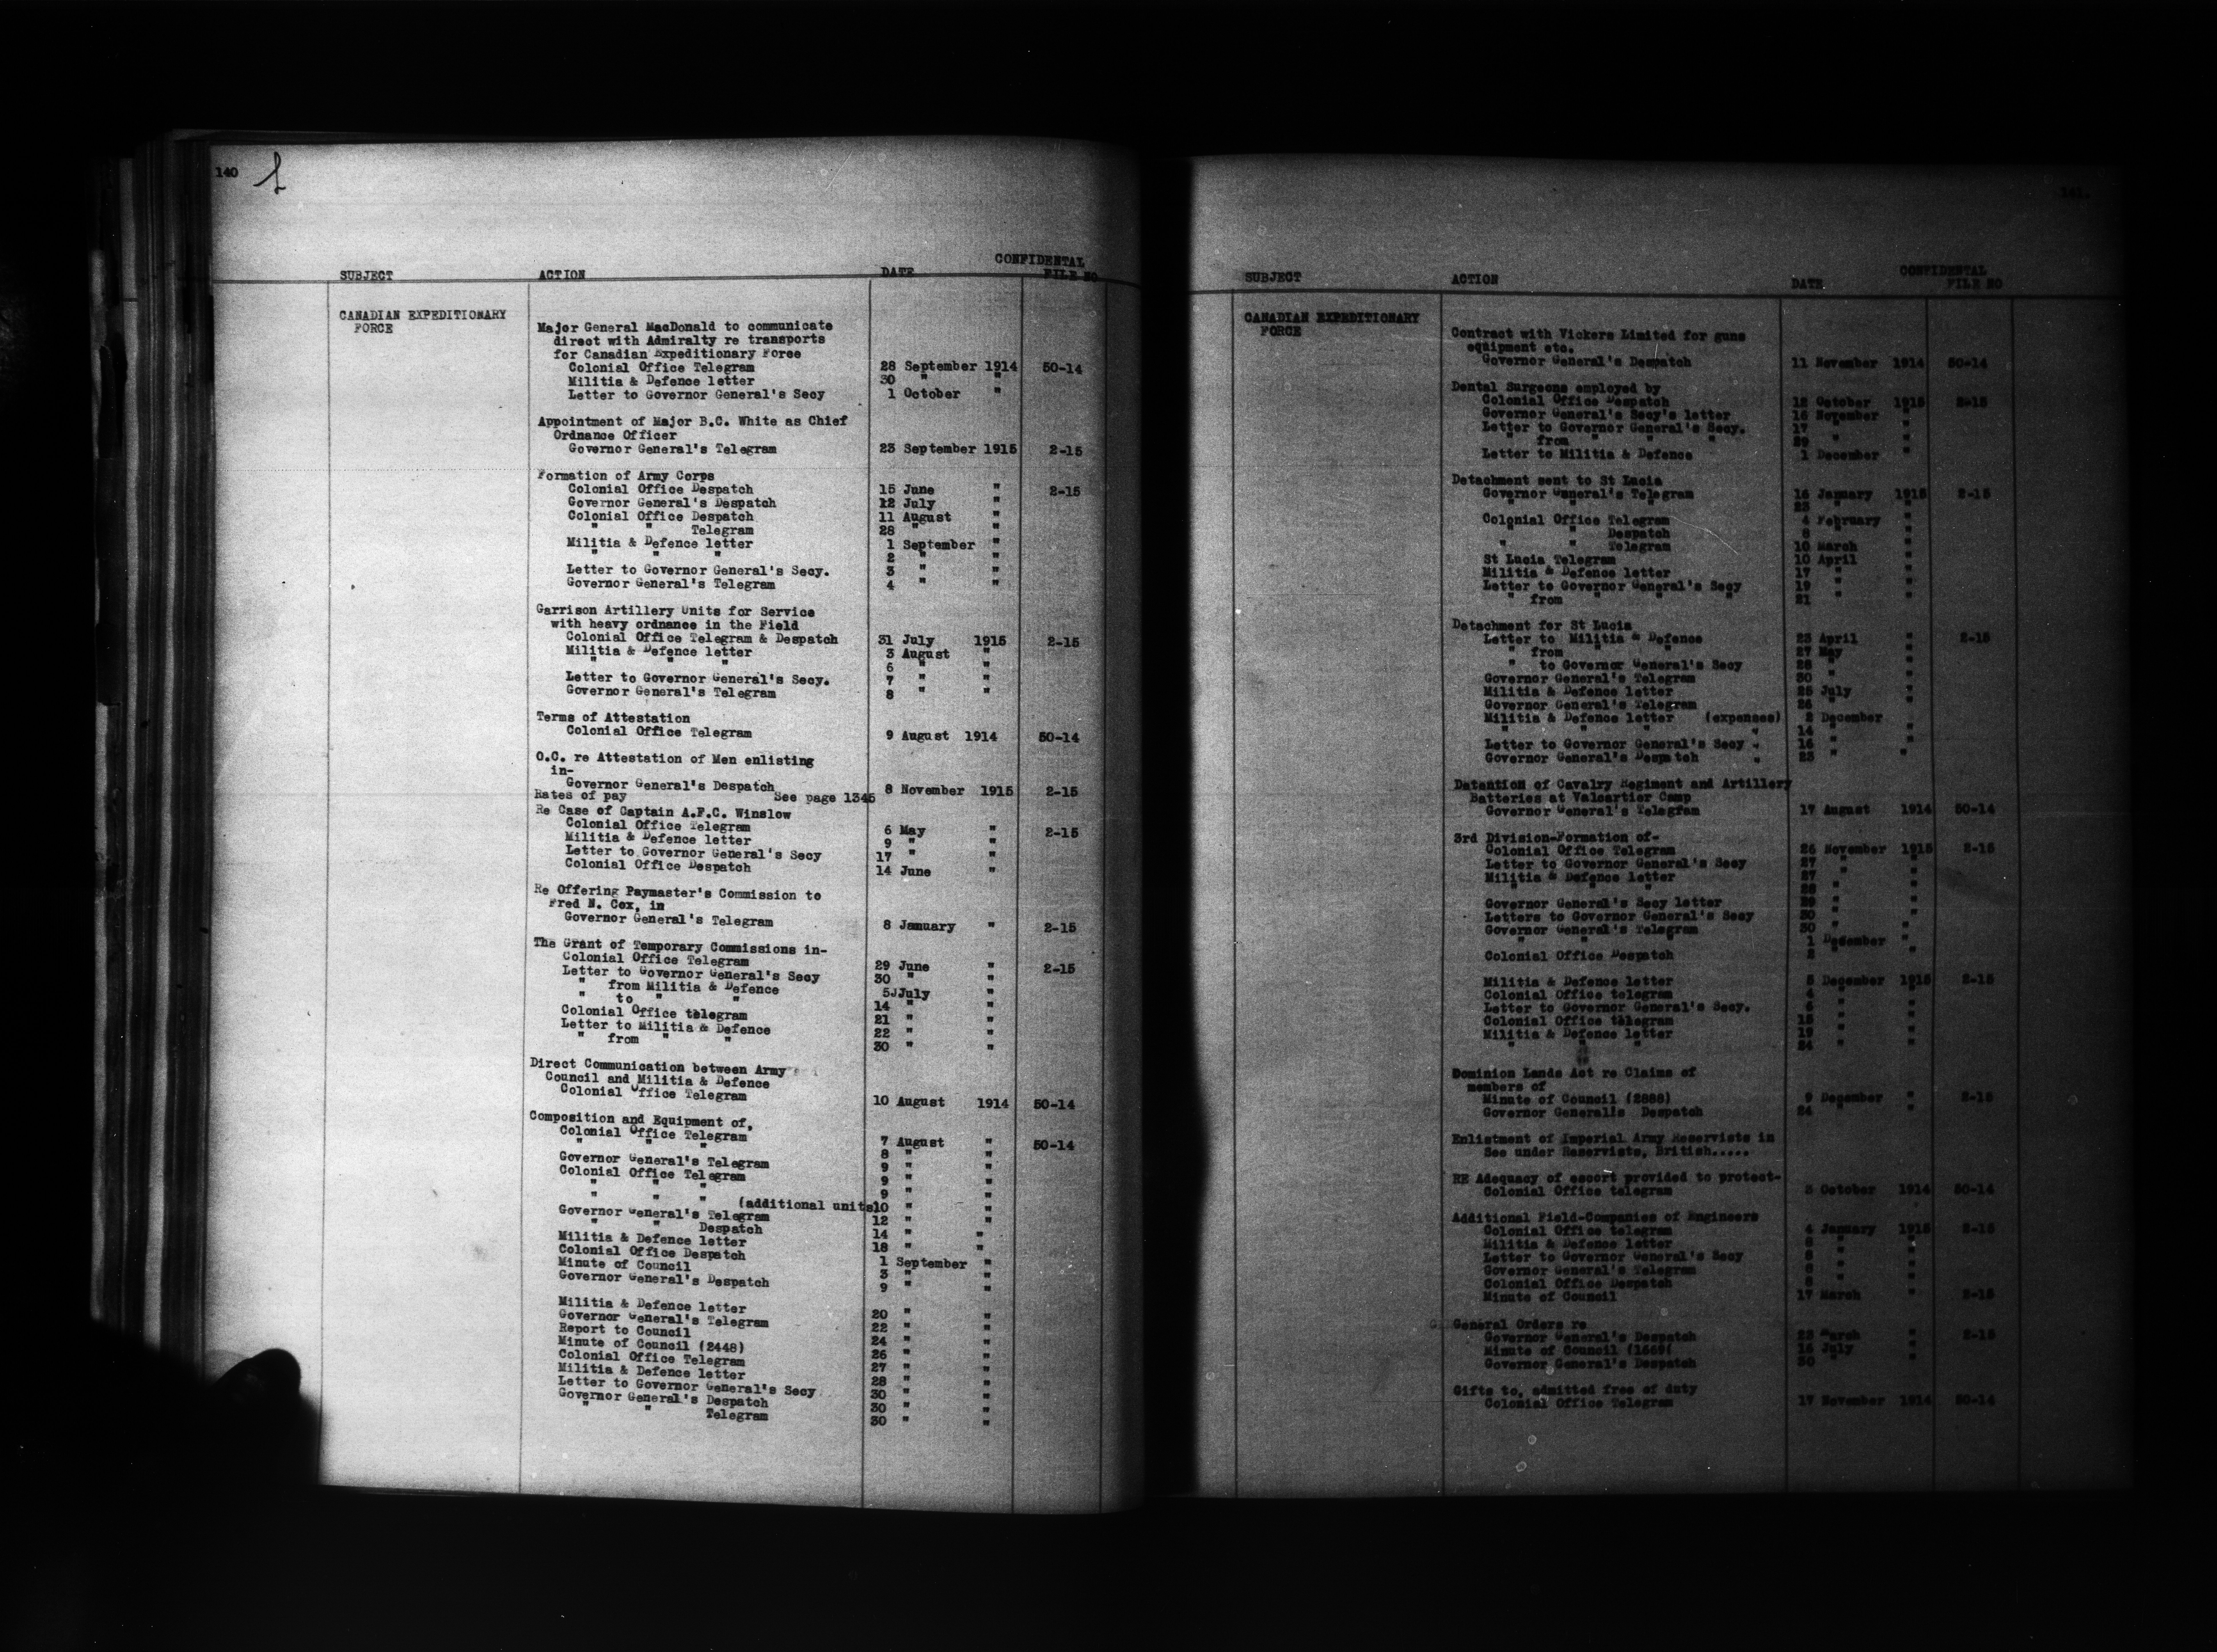 140
SUBJECT ACTION DATE CONFIDENTAL FILE NO
CANADIAN EXPEDITIONARY
FORCE
Major General MacDonald to communicate
direct with Admiralty re transports
for Canadian Expeditionary Force
Colonial Office Telegram 28 September 1914 50-14
Militia & Defence letter 30 " "
Letter to Governor General's Secy 1 October "
Appointment of Major B.C. White as Chief
Ordnance Officer
Governor General's Telegram 23 September 1915 2-15
Formation of Army Corps
Colonial Office Despatch 15 June " 2-15
Governor General's Despatch 12 July "
Colonial Office Despatch 11 August "
" " Telegram 28 " "
Militia & Defence letter 1 September "
" " " 2 " "
Letter to Governor General's Secy. 3 " "
Governor General's Telegram 4 " "
Garrison Artillery Units for Service
with heavy ordnance in the Field
Colonial Office Telegram & Despatch 31 July 1915 2-15
Militia & Defence letter 3 August "
" " " 6 " "
Letter to Governor General's Secy. 7 " "
Governor General's Telegram 8 " "
Terms of Attestation
Colonial Office Telegram 9 August 1914 50-14
O.C. re Attestation of Men enlisting
in-
Governor General's Despatch 8 November 1915 2-15
Rates of pay See page 1345
Re Case of Captain A.F.C. Winslow
Colonial Office Telegram 6 May " 2-15
Militia & Defence letter 9 " "
Letter to Governor General's Secy 17 " "
Colonial Office Despatch 14 June "
Re Offering Paymaster's Commission to
Fred N. Cox, in
Governor General's Telegram 8 January " 2-15
The Grant of Temporary Commissions in-
Colonial Office Telegram 29 June " 2-15
Letter to Governor General's Secy 30 " "
" from Militia & Defence 5JJuly "
" to " " 14 " "
Colonial Office telegram 21 " "
Letter to Militia & Defence 22 " "
" from " " 30 " "
Direct Communication between Army
Council and Militia & Defence
Colonial Office Telegram 10 August 1914 50-14
Composition and Equipment of,
Colonial Office Telegram 7 August " 50-14
" " " 8 " "
Governor General's Telegram 9 " "
Colonial Office Telegram 9 " "
" " " 9 " "
" " " (additional units)10 " "
Governor General's Telegram 12 " "
" " Despatch 14 " "
Militia & Defence letter 18 " "
Colonial Office Despatch 1 September "
Minute of Council 3 " "
Governor General's Despatch 9 " "
Militia & Defence letter 20 " "
Governor General's Telegram 22 " "
Report to Council 24 " "
Minute of Council (2448) 26 " "
Colonial Office Telegram 27 " "
Militia & Defence letter 28 " "
Letter to Governor General's Secy 30 " "
Governor General's Despatch 30 " "
" " Telegram 30 " "
141.
SUBJECT ACTION DATE CONFIDENTAL FILE NO
CANADIAN EXPEDITIONARY
FORCE
Contract with Vickers Limited for guns
equipment etc.
Governor General's Despatch 11 November 1914 50-14
Dental Surgeons employed by
Colonial Office Despatch 12 October 1915 2-15
Governor General's Secy's letter 16 November "
Letter to Governor General's Secy. 17 " "
" from " " " 29 " "
Letter to Militia & Defence 1 December "
Detachment sent to St Lucia
Governor General's Telegram 16 January 1915 2-15
" " " 23 " "
Colonial Office Telegram 4 February "
" " Despatch 8 " "
" " Telegram 10 March "
St Lucia Telegram 10 April "
Militia & Defence letter 17 " "
Letter to Governor General's Secy 19 " "
" from " " " 21 " "
Detachment for St Lucia
Letter to Militia & Defence 23 April " 2-15
" from " " 27 May "
" to Governor General's Secy 28 " "
Governor General's Telegram 30 " "
Militia & Defence letter 25 July "
Governor General's Telegram 26 " "
Militia & Defence letter (expenses) 2 December "
" " " " 14 " "
Letter to Governor General's Secy " 16 " "
Governor General's Despatch " 23 " "
Detention of Cavalry Regiment and Artillery
Batteries at Valcartier Camp
Governor General's Telegram 17 August 1914 50-14
3rd Division-Formation of-
Colonial Office Telegram 26 November 1915 2-15
Letter to Governor General's Secy 27 " "
Militia & Defence letter 27 " "
" " " 28 " "
Governor General's Secy letter 29 " "
Letters to Governor General's Secy 30 " "
Governor General's Telegram 30 " "
" " " 1 December "
Colonial Office Despatch 2 " "
Militia & Defence letter 5 December 1915 2-15
Colonial Office telegram 4 " "
Letter to Governor General's Secy. 6 " "
Colonial Office telegram 15 " "
Militia & Defence letter 19 " "
" " " 24 " "
Dominion Lands Act re Claims of
members of
Minute of Council (2888) 9 December " 2-15
Governor Generalls Despatch 24 " "
Enlistment of Imperial Army Reservists in
See under Reservists, British.....
RE Adequacy of escort provided to protect-
Colonial Office telegram 3 October 1914 50-14
Additional Field-Companies of Engineers
Colonial Office telegram 4 January 1915 2-15
Militia & Defence letter 6 " "
Letter to Governor General's Secy 8 " "
Governor General's Telegram 8 " "
Colonial Office Despatch 8 " "
Minute of Council 17 March " 2-15
General Orders re
Governor General's Despatch 23 March " 2-15
Minute of Council (1669( 16 July "
Governor General's Despatch 30 " "
Gifts to, admitted free of duty
Colonial Office Telegram 17 November 1914 50-14